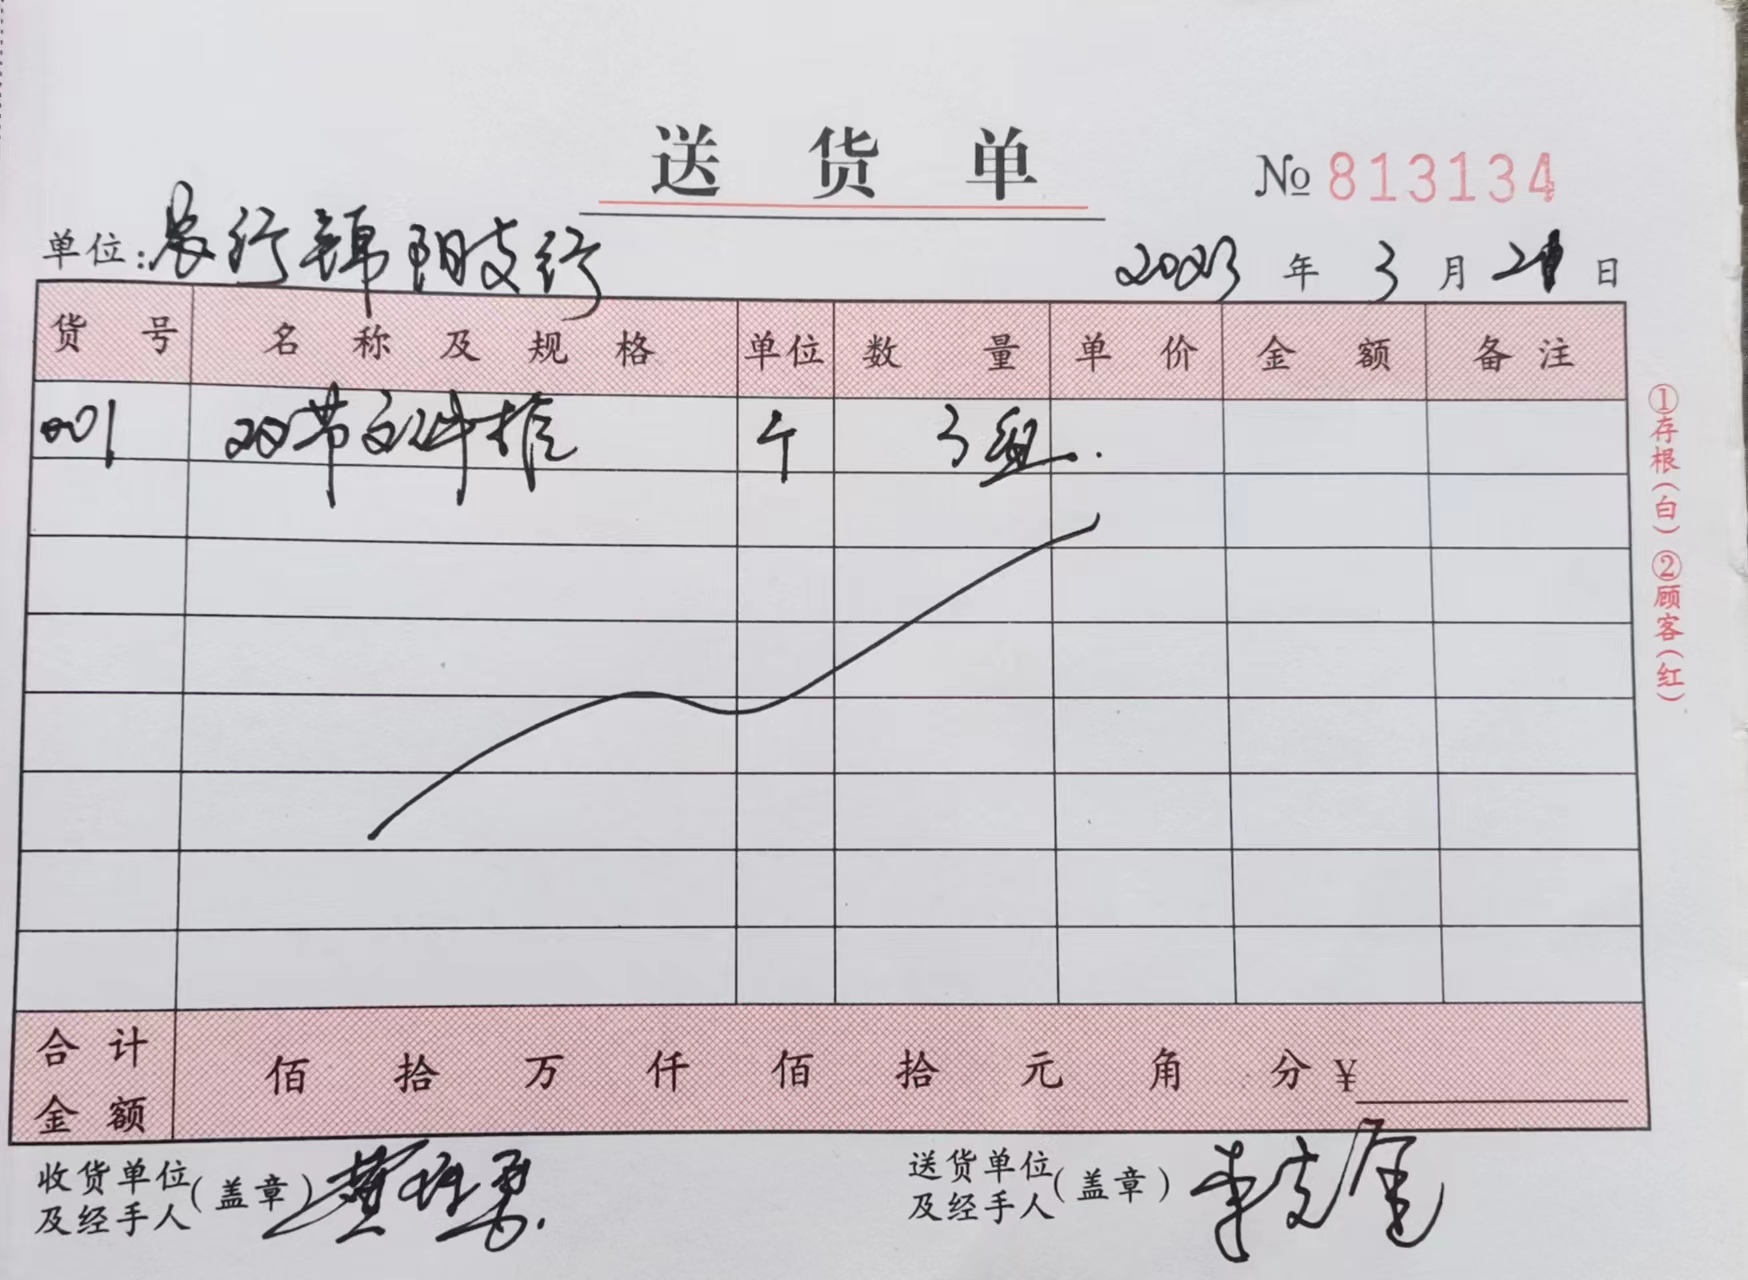 送货单
№ 813134
单位:农行锦阳支行 2023年3月21日
货号 名称及规格 单位 数量 单价 金额 备注
001 双节文件柜 个 3组.
合计金额 佰 拾 万 仟 佰 拾 元 角 分 ¥
收货单位及经手人(盖章) 黄
送货单位及经手人(盖章) 李
①存根(白)②顾客(红)